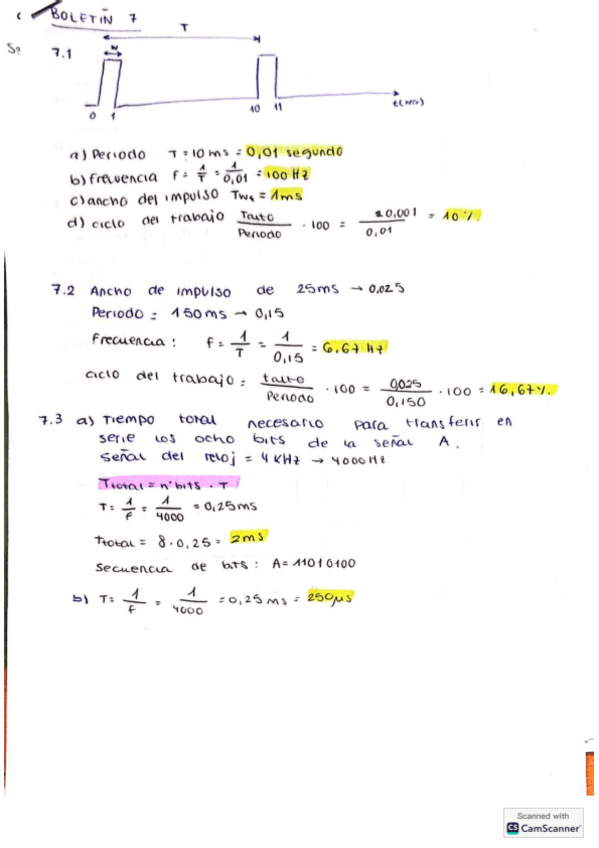 BOLETÍN 7
T
7.1
W
0 1 10 11 t(ms)
a) Periodo T = 10 ms = 0,01 segundo
b) frecuencia f = 1/T = 1/0,01 = 100 Hz
c) ancho del impulso Tw = 1ms
d) ciclo del trabajo Talto/Periodo · 100 = 0,001/0,01 = 10%.
7.2 Ancho de impulso de 25ms → 0,025
Periodo = 150ms → 0,15
Frecuencia: f = 1/T = 1/0,15 = 6,67 Hz
ciclo del trabajo = talto/Periodo · 100 = 0,025/0,150 · 100 = 16,67%.
7.3 a) Tiempo total necesario para transferir en
serie los ocho bits de la señal A.
señal del reloj = 4 KHz → 4000Hz
Ttotal = nº bits · T
T = 1/f = 1/4000 = 0,25ms
Ttotal = 8 · 0,25 = 2ms
secuencia de bits: A = 11010100
b) T = 1/f = 1/4000 = 0,25ms = 250µs
Scanned with
CS CamScanner